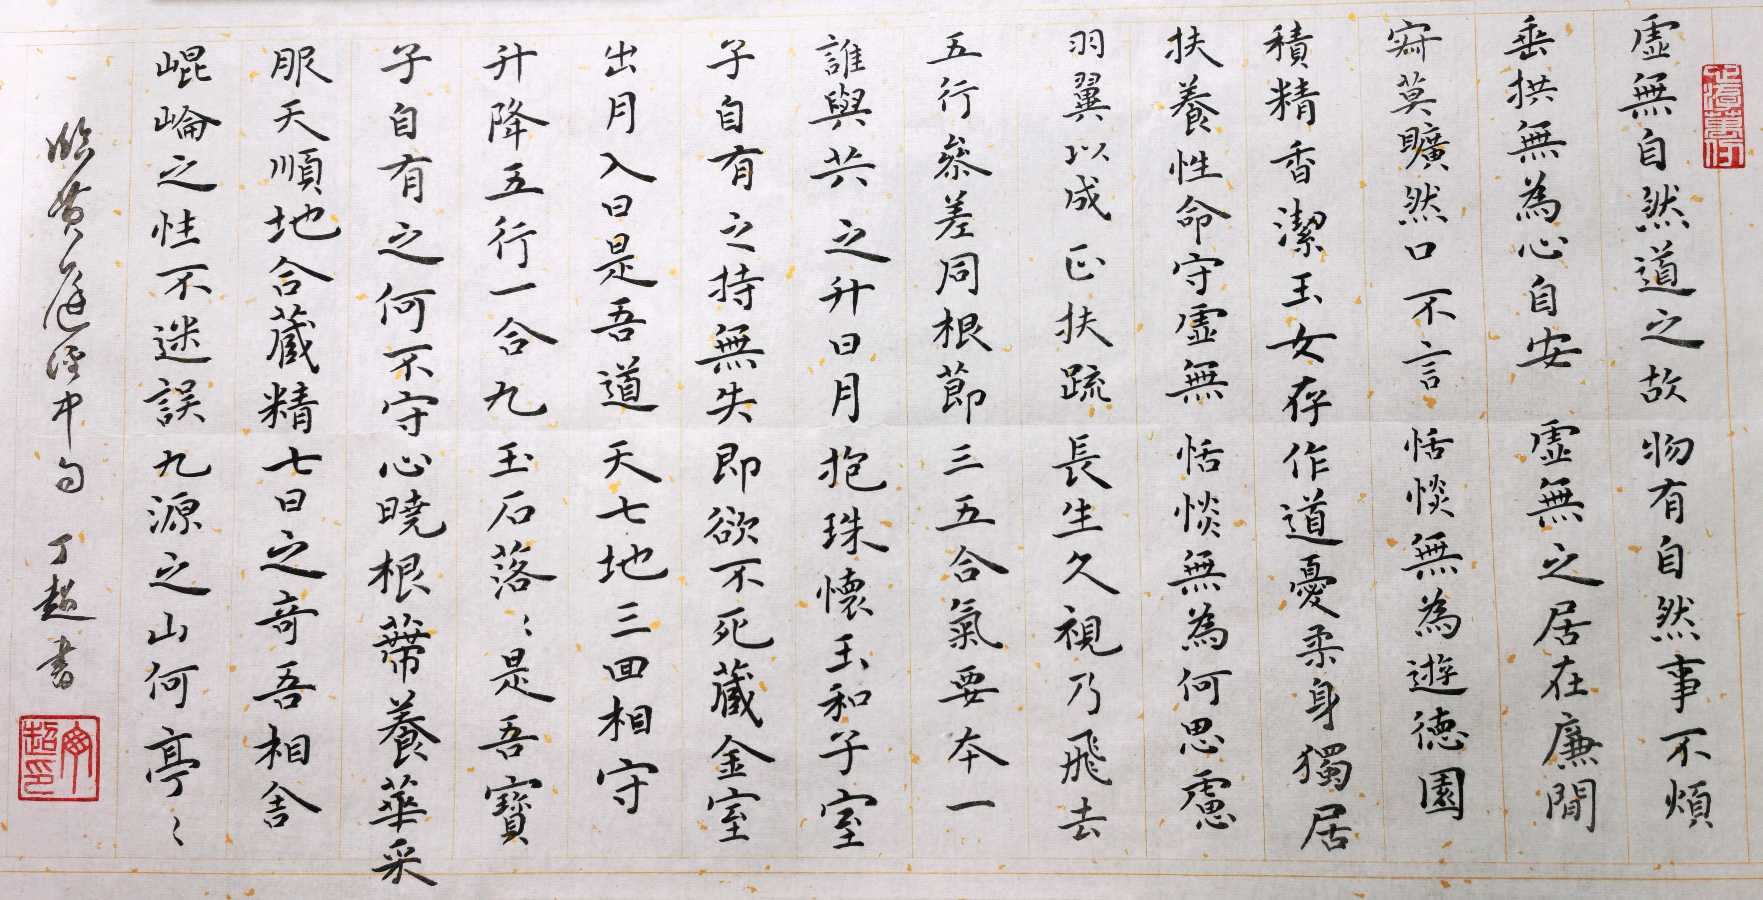 虛無自然道之故物有自然事不煩
垂拱無為心自安虛無之居在廉間
寂莫曠然口不言恬惔無為遊德園
積精香潔玉女存作道憂柔身獨居
扶養性命守虛無恬惔無為何思慮
羽翼以成正扶疏長生久視乃飛去
五行參差同根節三五合氣要本一
誰與共之升日月抱珠懷玉和子室
子自有之持無失即欲不死藏金室
出月入日是吾道天七地三回相守
升降五行一合九玉石落〻是吾寶
子自有之何不守心曉根蒂養華采
服天順地合藏精七日之奇吾相舍
崐崘之性不迷誤九源之山何亭〻
臨黃庭經中句 丁超書